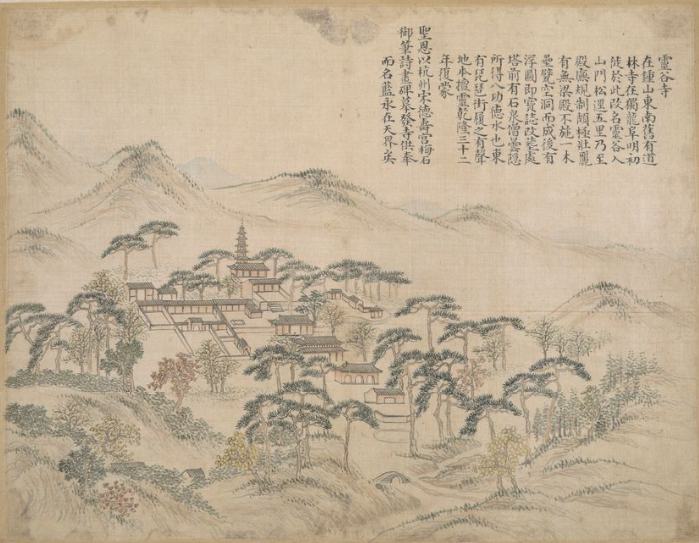 靈谷寺
在鍾山東南舊有道
林寺在獨龍阜明初
徙於此改名靈谷入
山門松逕五里乃至
殿廡規制頗極壯麗
有無梁殿不施一木
壘甓空洞而成後有
浮圖即寶誌改塟處
塔前有石泉僧曇隱
所得八功德水也東
有琵琶街履之有聲
地本擅靈乾隆三十二
年復蒙
聖恩以杭州宋德壽宮梅石
御筆詩畫碑摹發寺供奉
而名藍永在天界矣